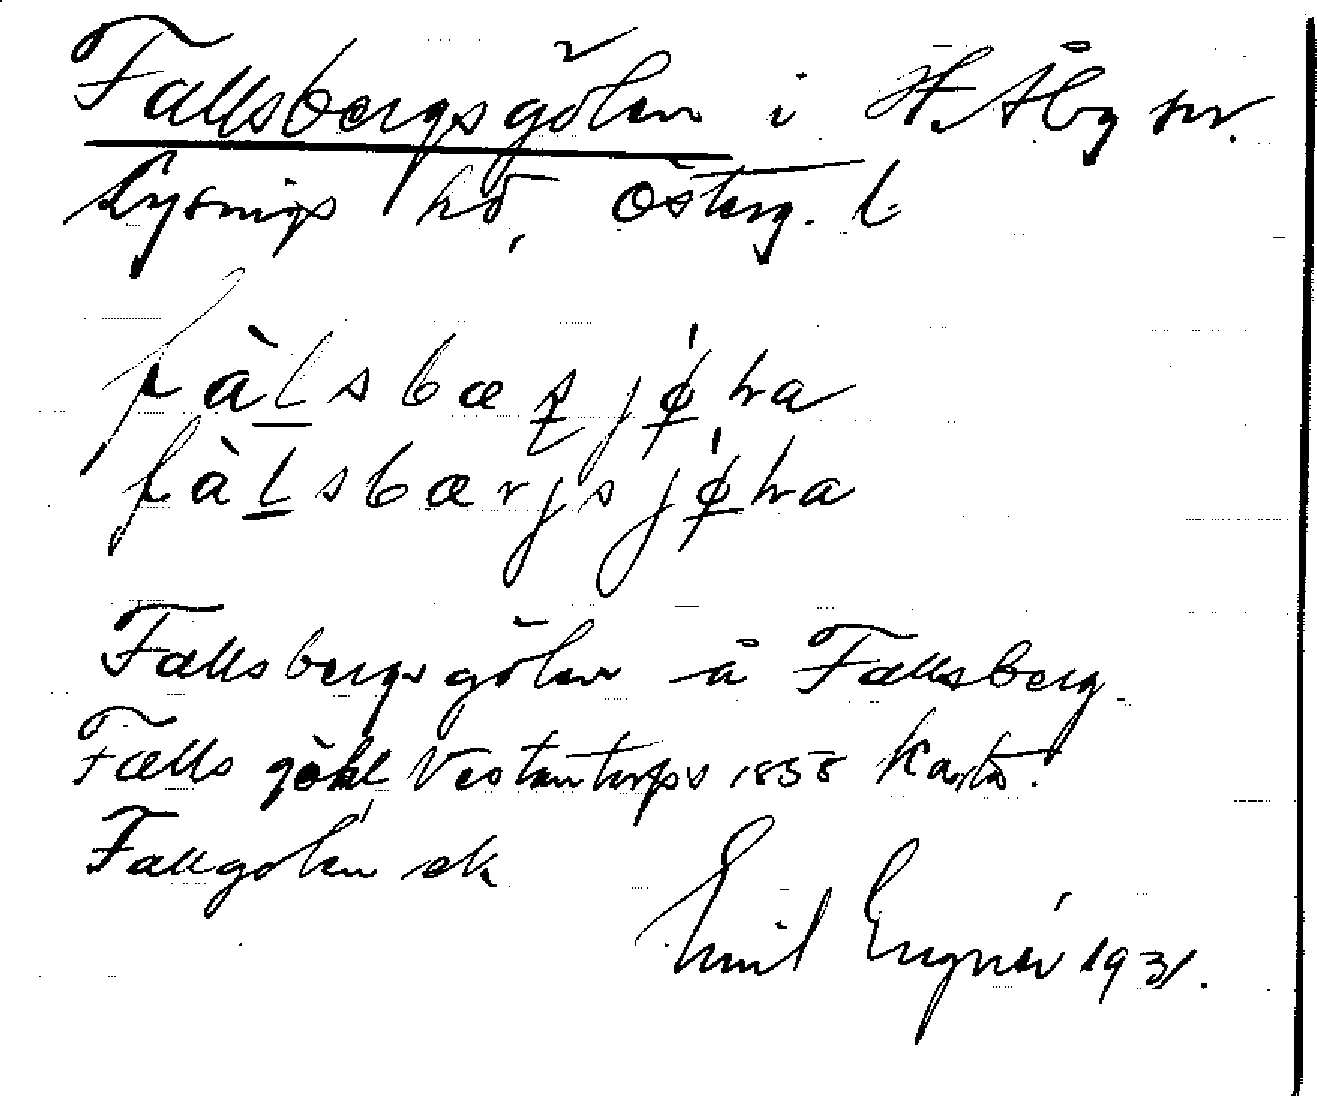 Fallsbergsgölen i H. Åby sn.
Lysings hd, Österg. l
fàlsbærjøʹna
fàlsbærjsjøʹna
Fallsbergsgölen å Fallsberg.
Falls göhl Vestantorps 1858 Karta.
Fallgölen ek
Emil Engnér 1931.